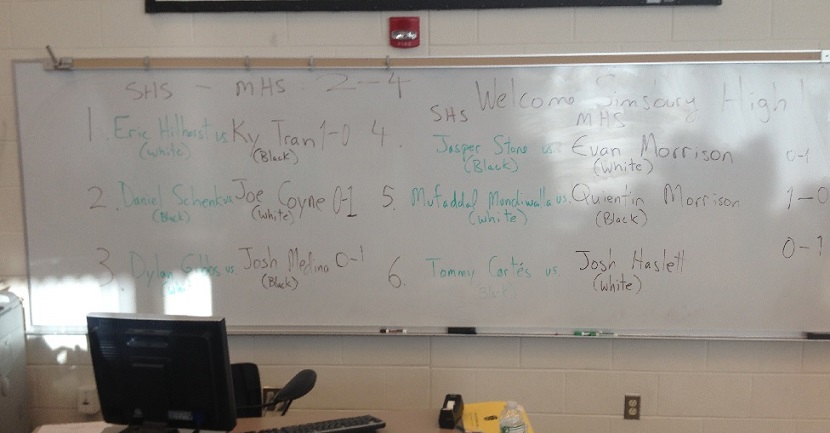 SHS - MHS 2-4
Welcome Simsbury High!
SHS MHS
1. Eric Hilhorst vs. Ky Tran 1-0
(White) (Black)
2. Daniel Schenk vs. Joe Coyne 0-1
(Black) (White)
3. Dylan Gibbs vs. Josh Medina 0-1
(White) (Black)
4. Jasper Stone vs. Evan Morrison 0-1
(Black) (White)
5. Mufaddal Mandiwalla vs. Quientin Morrison 1-0
(White) (Black)
6. Tommy Cortés vs. Josh Haslett 0-1
(Black) (White)
FIRE